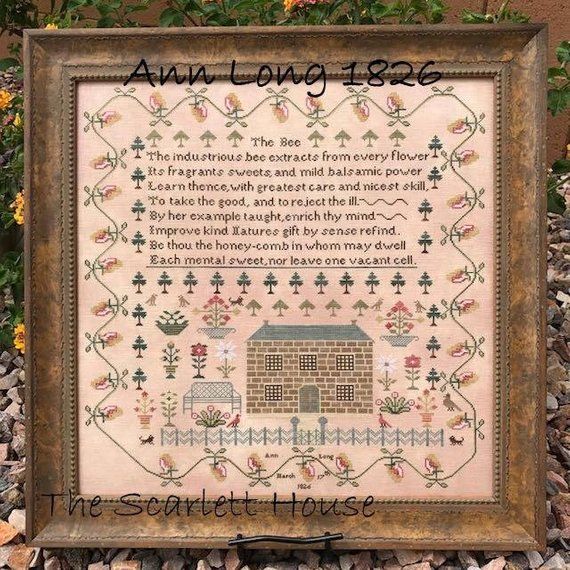 Ann Long 1826
The Bee
The industrious bee extracts from every flower
Its fragrants sweets, and mild balsamic power
Learn thence, with greatest care and nicest skill,
To take the good, and to reject the ill.
By her example taught, enrich thy mind
Improve kind Natures gift by sense refind.
Be thou the honey-comb in whom may dwell
Each mental sweet, nor leave one vacant cell.
Ann Long
March 17th
1826
The Scarlett House